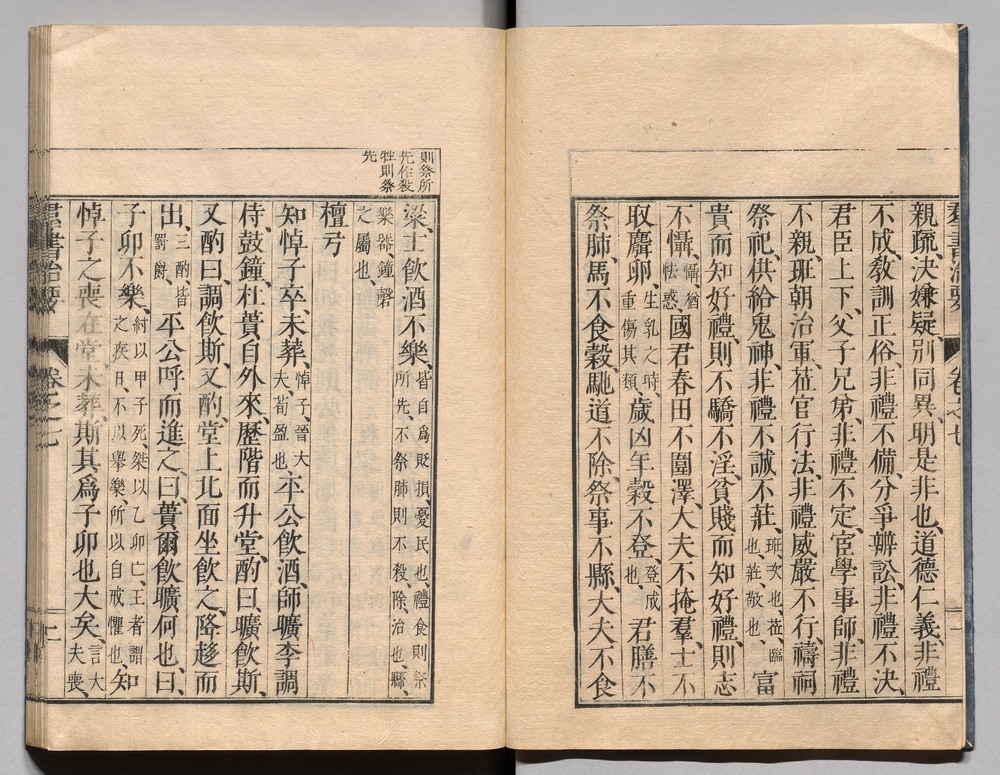 羣書治要 卷之七 一
親疏、決嫌疑、別同異、明是非也、道德仁義、非禮
不成、敎訓正俗、非禮不備、分爭辨訟、非禮不決、
君臣上下、父子兄弟、非禮不定、宦學事師、非禮
不親、班朝治軍、莅官行法、非禮威嚴不行、禱祠
祭祀、供給鬼神、非禮不誠不莊、班次也、莅、臨也、莊、敬也、富
貴而知好禮、則不驕不淫、貧賤而知好禮、則志
不懾、懾、猶怯惑、國君春田不圍澤、大夫不掩羣、士不
取麛卵、生乳之時、重傷其類、歲凶年穀不登、登、成也、君膳不
祭肺、馬不食穀、馳道不除、祭事不縣、大夫不食
則祭所
先作殺
牲則祭
先
梁、士飮酒不樂、皆自爲貶損、憂民也、禮食則祭所先、不祭肺則不殺、除、治也、縣、
樂器鐘磬之屬也、
檀弓
知悼子卒、未葬、悼子晉大夫荀盈也、平公飮酒、師曠李調
侍、鼓鐘、杜蕢自外來、歷階而升堂、酌曰、曠飮斯、
又酌曰、調飮斯、又酌、堂上北面坐飮之、降趍而
出、三酌、皆罰爵、平公呼而進之、曰、蕢爾飮曠何也、曰、
子卯不樂、紂以甲子死、桀以乙卯亡、王者謂之疾日、不以舉樂、所以自戒懼也、知
悼子之喪在堂、未葬、斯其爲子卯也大矣、言大夫喪、
羣書治要 卷之七 二